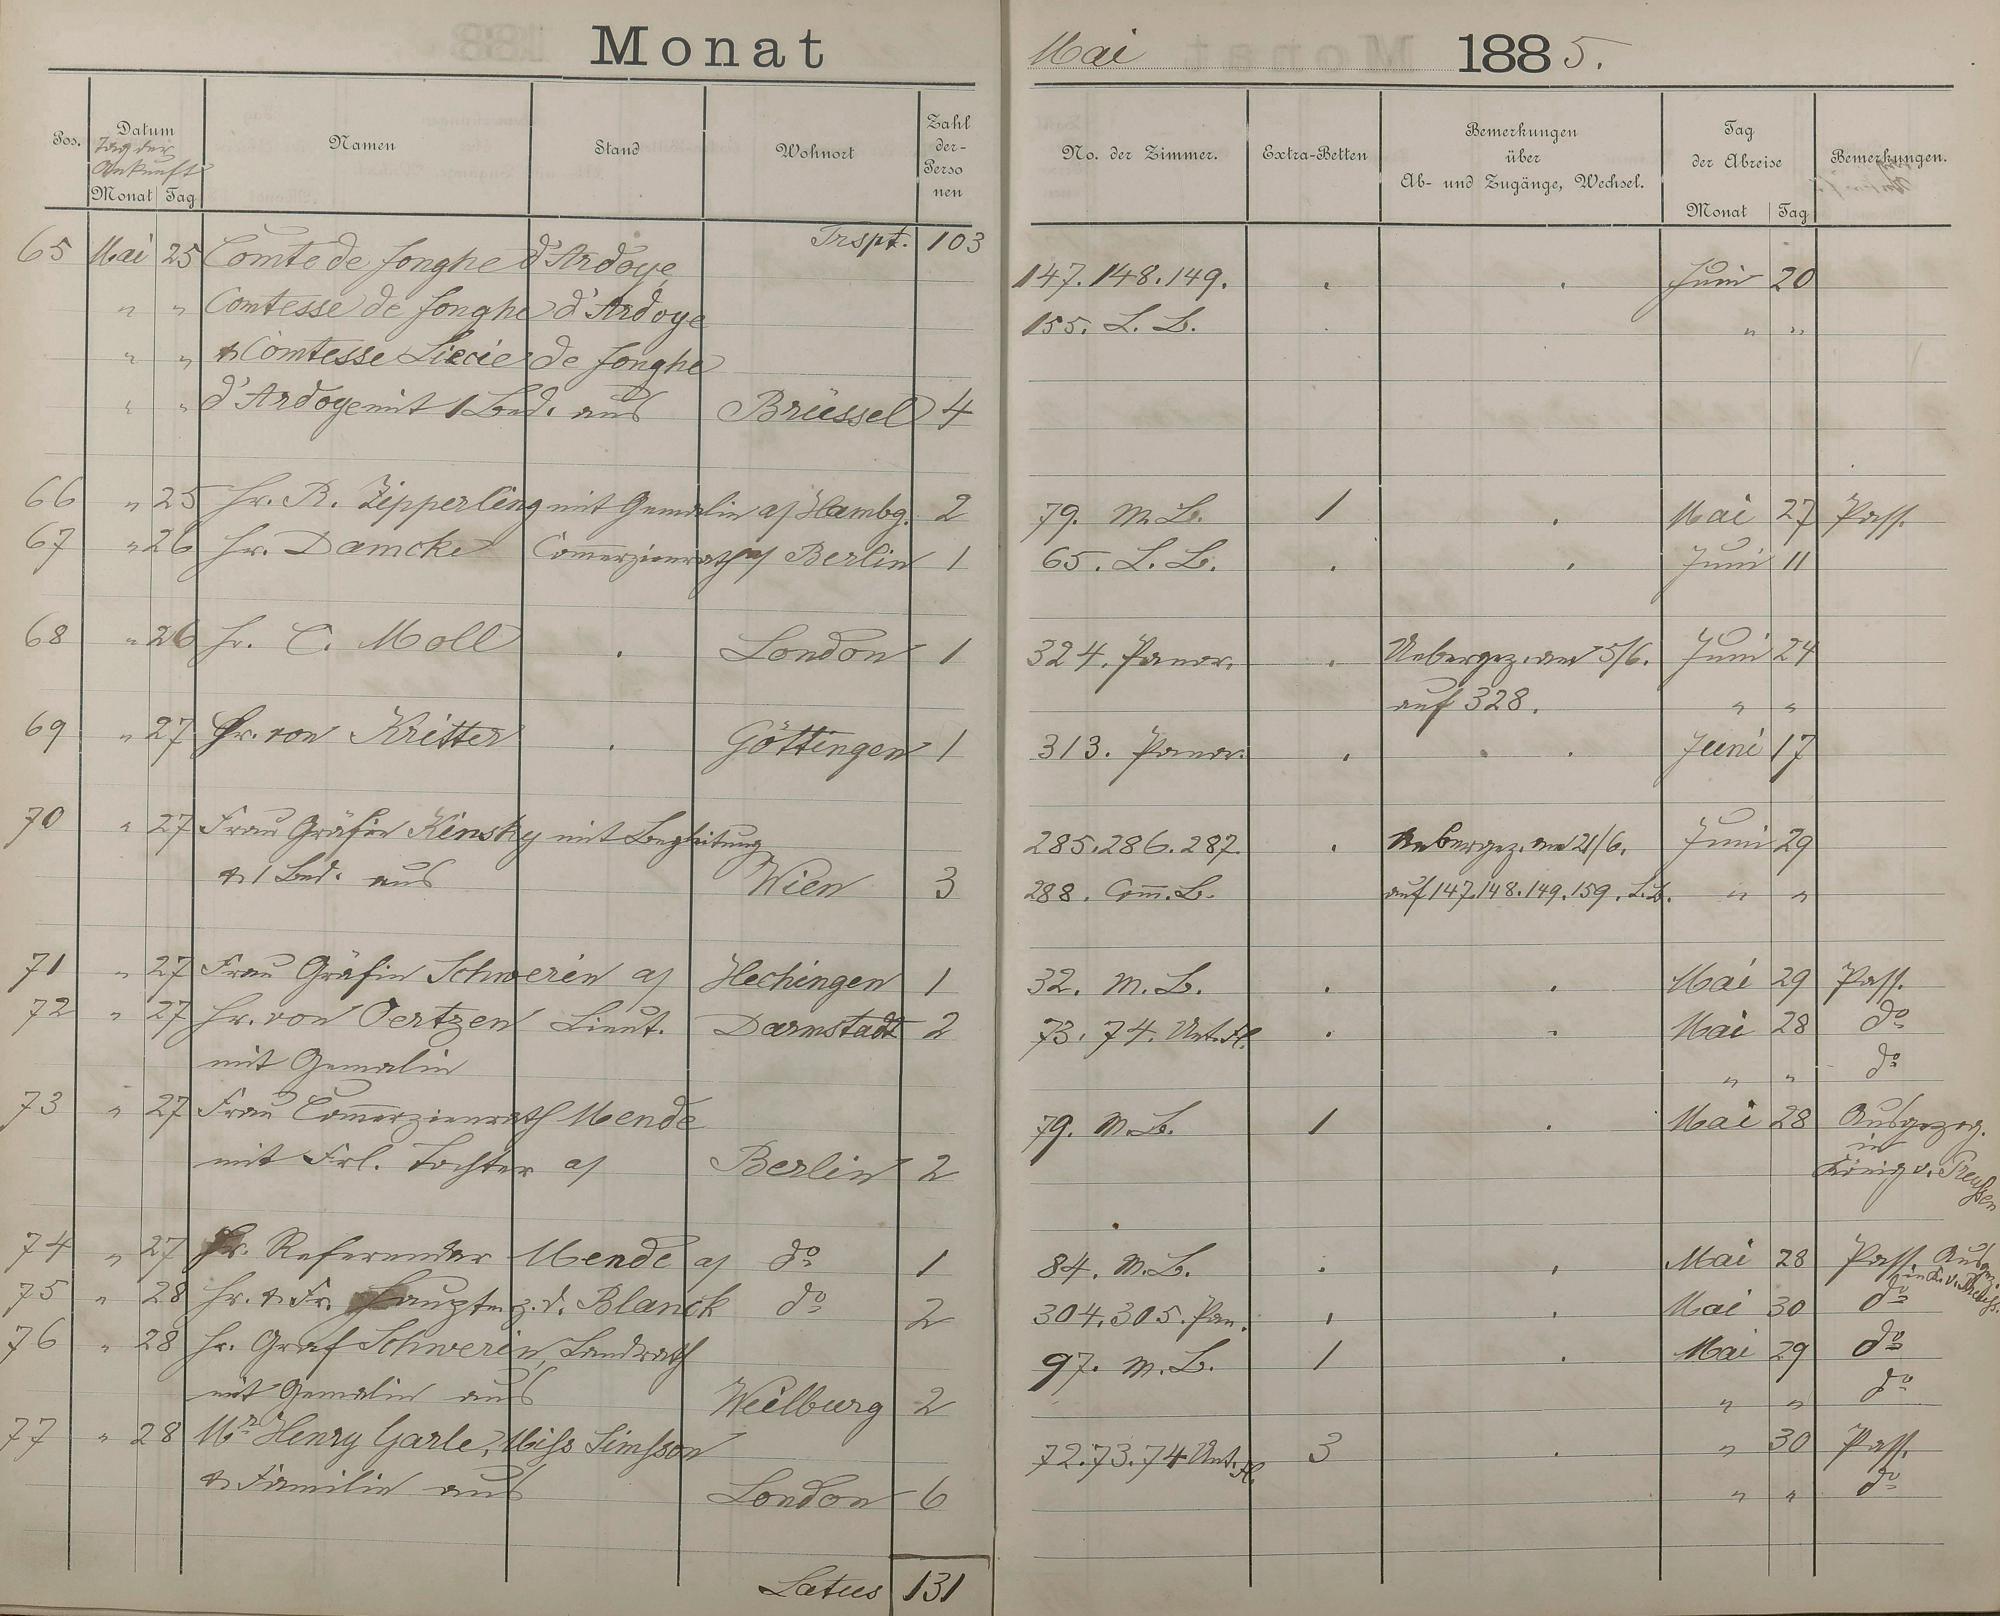 Monat Mai 1885.
Pos. Datum Namen Stand Wohnort Zahl der Personen No. der Zimmer. Extra-Betten Bemerkungen über Ab- und Zugänge, Wechsel. Tag der Abreise Bemerkungen.
Tag der Ankunft
Monat Tag Monat Tag
Trspt. 103
65 Mai 25 Comte de Jonghe d'Ardoye 147. 148. 149. . . Juni 20
" " Comtesse de Jonghe d'Ardoye 155. L. B. . " "
" " & Comtesse Liecie de Jonghe
" " d'Ardoye mit 1 Bed. aus Brüssel 4
66 " 25 Hr. R. Zipperling mit Gemalin a/ Hambg. 2 79. M. B. 1 . Mai 27 Pass.
67 " 26 Hr. Damcke Commerzienrath a/ Berlin 1 65. L. B. . . Juni 11
68 " 26 Hr. C. Moll . London 1 324. Panor. . Uebergez. am 5/6. Juni 24
auf 328. " "
69 " 27 Hr. von Kritter . Göttingen 1 313. Panor. . . . Juni 17
70 " 27 Frau Gräfin Kinsky mit Begleitung 285. 286. 287. . Uebergez. am 21/6. Juni 29
& 1 Bed. aus Wien 3 288. Com. B. auf 147. 148. 149. 159. L. B. " "
71 " 27 Frau Gräfin Schwerin a/ Hechingen 1 32. M. B. . . Mai 29 Pass.
72 " 27 Hr. von Oertzen Lieut. Darmstadt 2 73. 74. Unt. Fl. . . Mai 28 do
mit Gemalin " " do
73 " 27 Frau Commerzienrath Mende 79. M. B. 1 . Mai 28 Ausgezog.
in
mit Frl. Tochter a/ Berlin 2 König v. Preußen
74 " 27 Hr. Referendar Mende a/ do 1 84. M. B. . . Mai 28 Pass. Ausgez.
in K. v. Preuss.
75 " 28 Hr. & Fr. Hauptm. z. d. Blanck do 2 304. 305. Pan. . . Mai 30 do
76 " 28 Hr. Graf Schwerin, Landrath 97. M. B. 1 . Mai 29 do
mit Gemalin aus Weilburg 2 " " do
77 " 28 Mr Henry Garle, Miss Simpson 72. 73. 74 Unt. Fl. 3 . " 30 Pass.
& Familie aus London 6 " " do
Latus 131